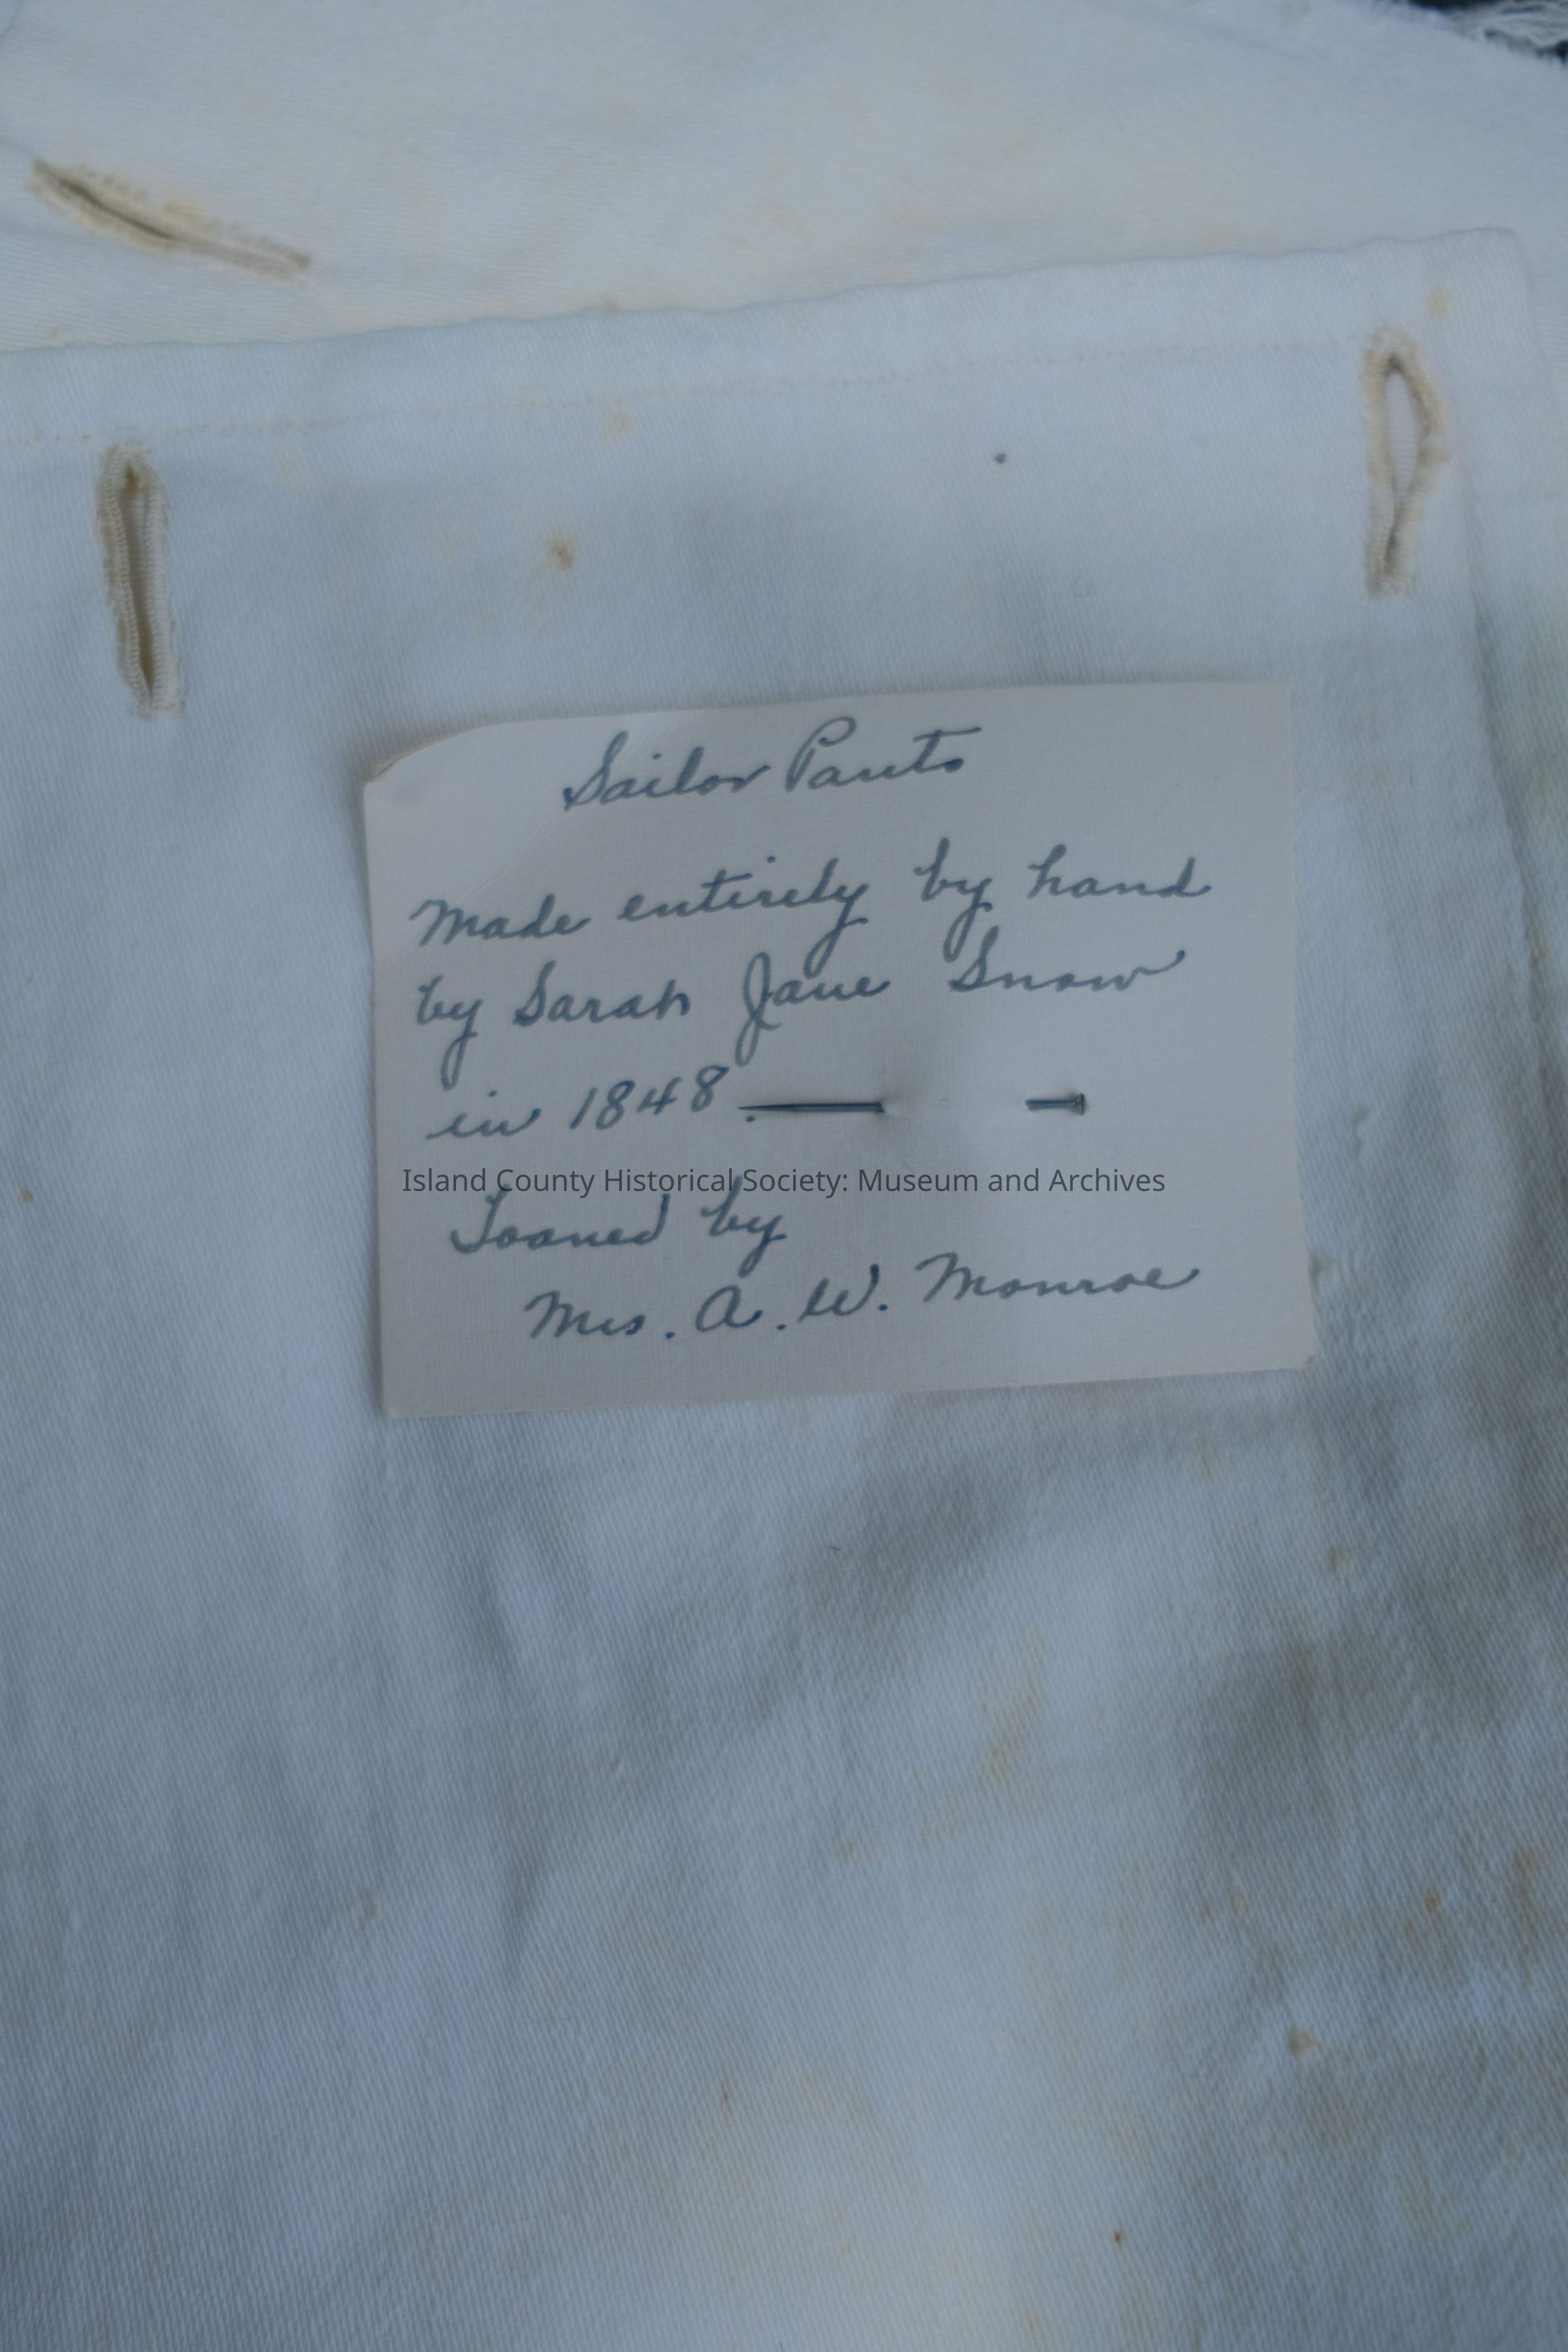 Sailor Pants
Made entirely by hand
by Sarah Jane Snow
in 1848.
Island County Historical Society: Museum and Archives
Loaned by
Mrs. A. W. Monroe